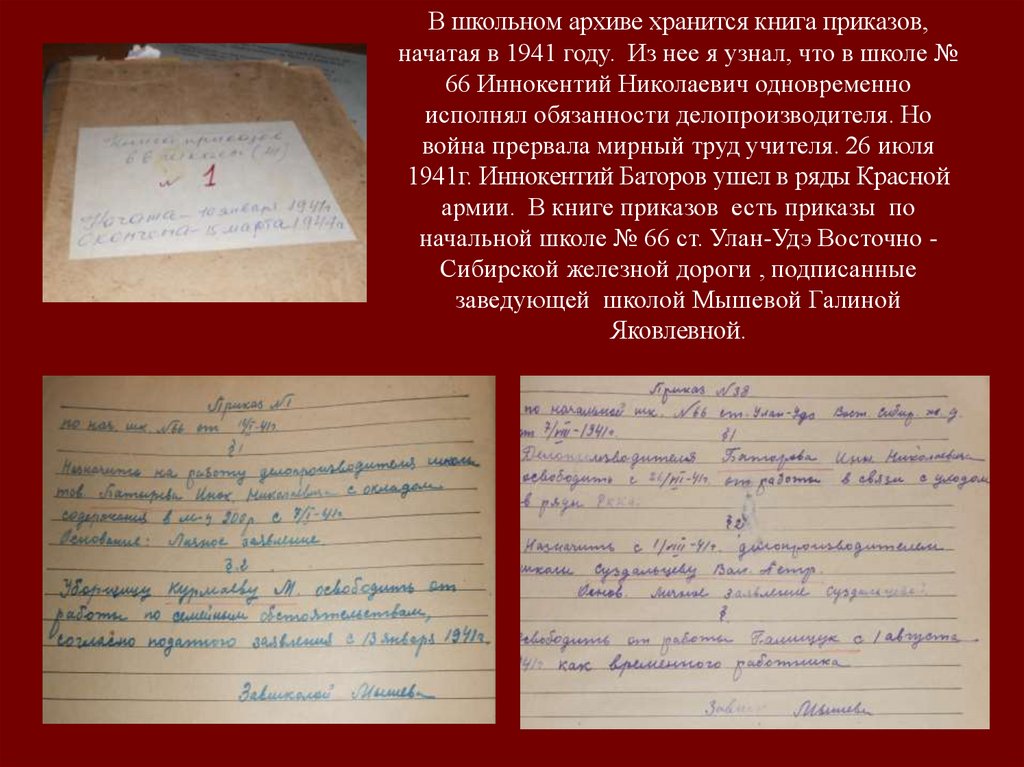 В школьном архиве хранится книга приказов,
начатая в 1941 году. Из нее я узнал, что в школе №
66 Иннокентий Николаевич одновременно
исполнял обязанности делопроизводителя. Но
война прервала мирный труд учителя. 26 июля
1941г. Иннокентий Баторов ушел в ряды Красной
армии. В книге приказов есть приказы по
начальной школе № 66 ст. Улан-Удэ Восточно -
Сибирской железной дороги , подписанные
заведующей школой Мышевой Галиной
Яковлевной.
Книга приказов
№ 1
Начата - 10 января 1941г.
Окончена - 15 марта 1944г.
Приказ №1
по нач. шк. №66 от
§1
Назначить на работу делопроизводителя школы
тов. Батырева Инок. Николаевича с окладом
содержания в м-ц 200р с 7/I-41г.
Основание: Личное заявление.
§.2
Уборщицу Курмаеву М. освободить от
работы по семейным обстоятельствам,
согласно податого заявления с 13 января 1941г.
Завшколой Мышева
Приказ №38
по начальной шк. №66 ст. Улан-Удэ Вост. Сибир. ж. д.
от 7/VIII-1941г.
§1
Делопроизводителя Батарова Инн Николаевича
освободить с 26/VII-41г. от работы в связи с уходом
в ряды Ркка.
§2
Назначить с 1/VIII-41г. делопроизводителем
школы Суздальцеву Вал. Петр.
Основ. Личное заявление Суздальцевой.
§
Освободить от работы Полищук с 1 августа
41г. как временного работника
Мышева